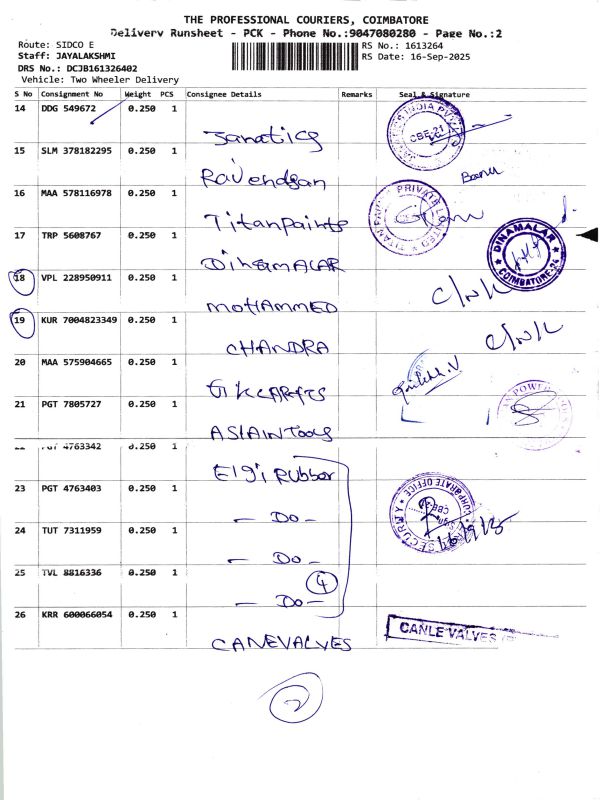 THE PROFESSIONAL COURIERS, COIMBATORE
Delivery Runsheet - PCK - Phone No.:9047080280 - Page No.:2
Route: SIDCO E
RS No.: 1613264
Staff: JAYALAKSHMI
RS Date: 16-Sep-2025
DRS No.: DCJB161326402
Vehicle: Two Wheeler Delivery
S No Consignment No Weight PCS Consignee Details Remarks Seal & Signature
14 DDG 549672 0.250 1
Janatics
CBE-21
15 SLM 378182295 0.250 1
Ravendran
Banu
16 MAA 578116978 0.250 1
Titan Paints
PRIVATE LIMITED
17 TRP 5608767 0.250 1
DINAMALAR
DINAMALAR COIMBATORE-24
18 VPL 228950911 0.250 1
MOHAMMED
C/N/L
19 KUR 7004823349 0.250 1
CHANDRA
C/N/L
20 MAA 575904665 0.250 1
21 PGT 7805727 0.250 1
ASIAIN Tools
22 PGT 4763342 0.250 1
Elgi Rubber
23 PGT 4763403 0.250 1
- Do -
CORPORATE OFFICE SECURITY
24 TUT 7311959 0.250 1
- Do -
16/9/25
25 TVL 8816336 0.250 1
4
- Do -
26 KRR 600066054 0.250 1
CANEVALVES
CANLE VALVES
2